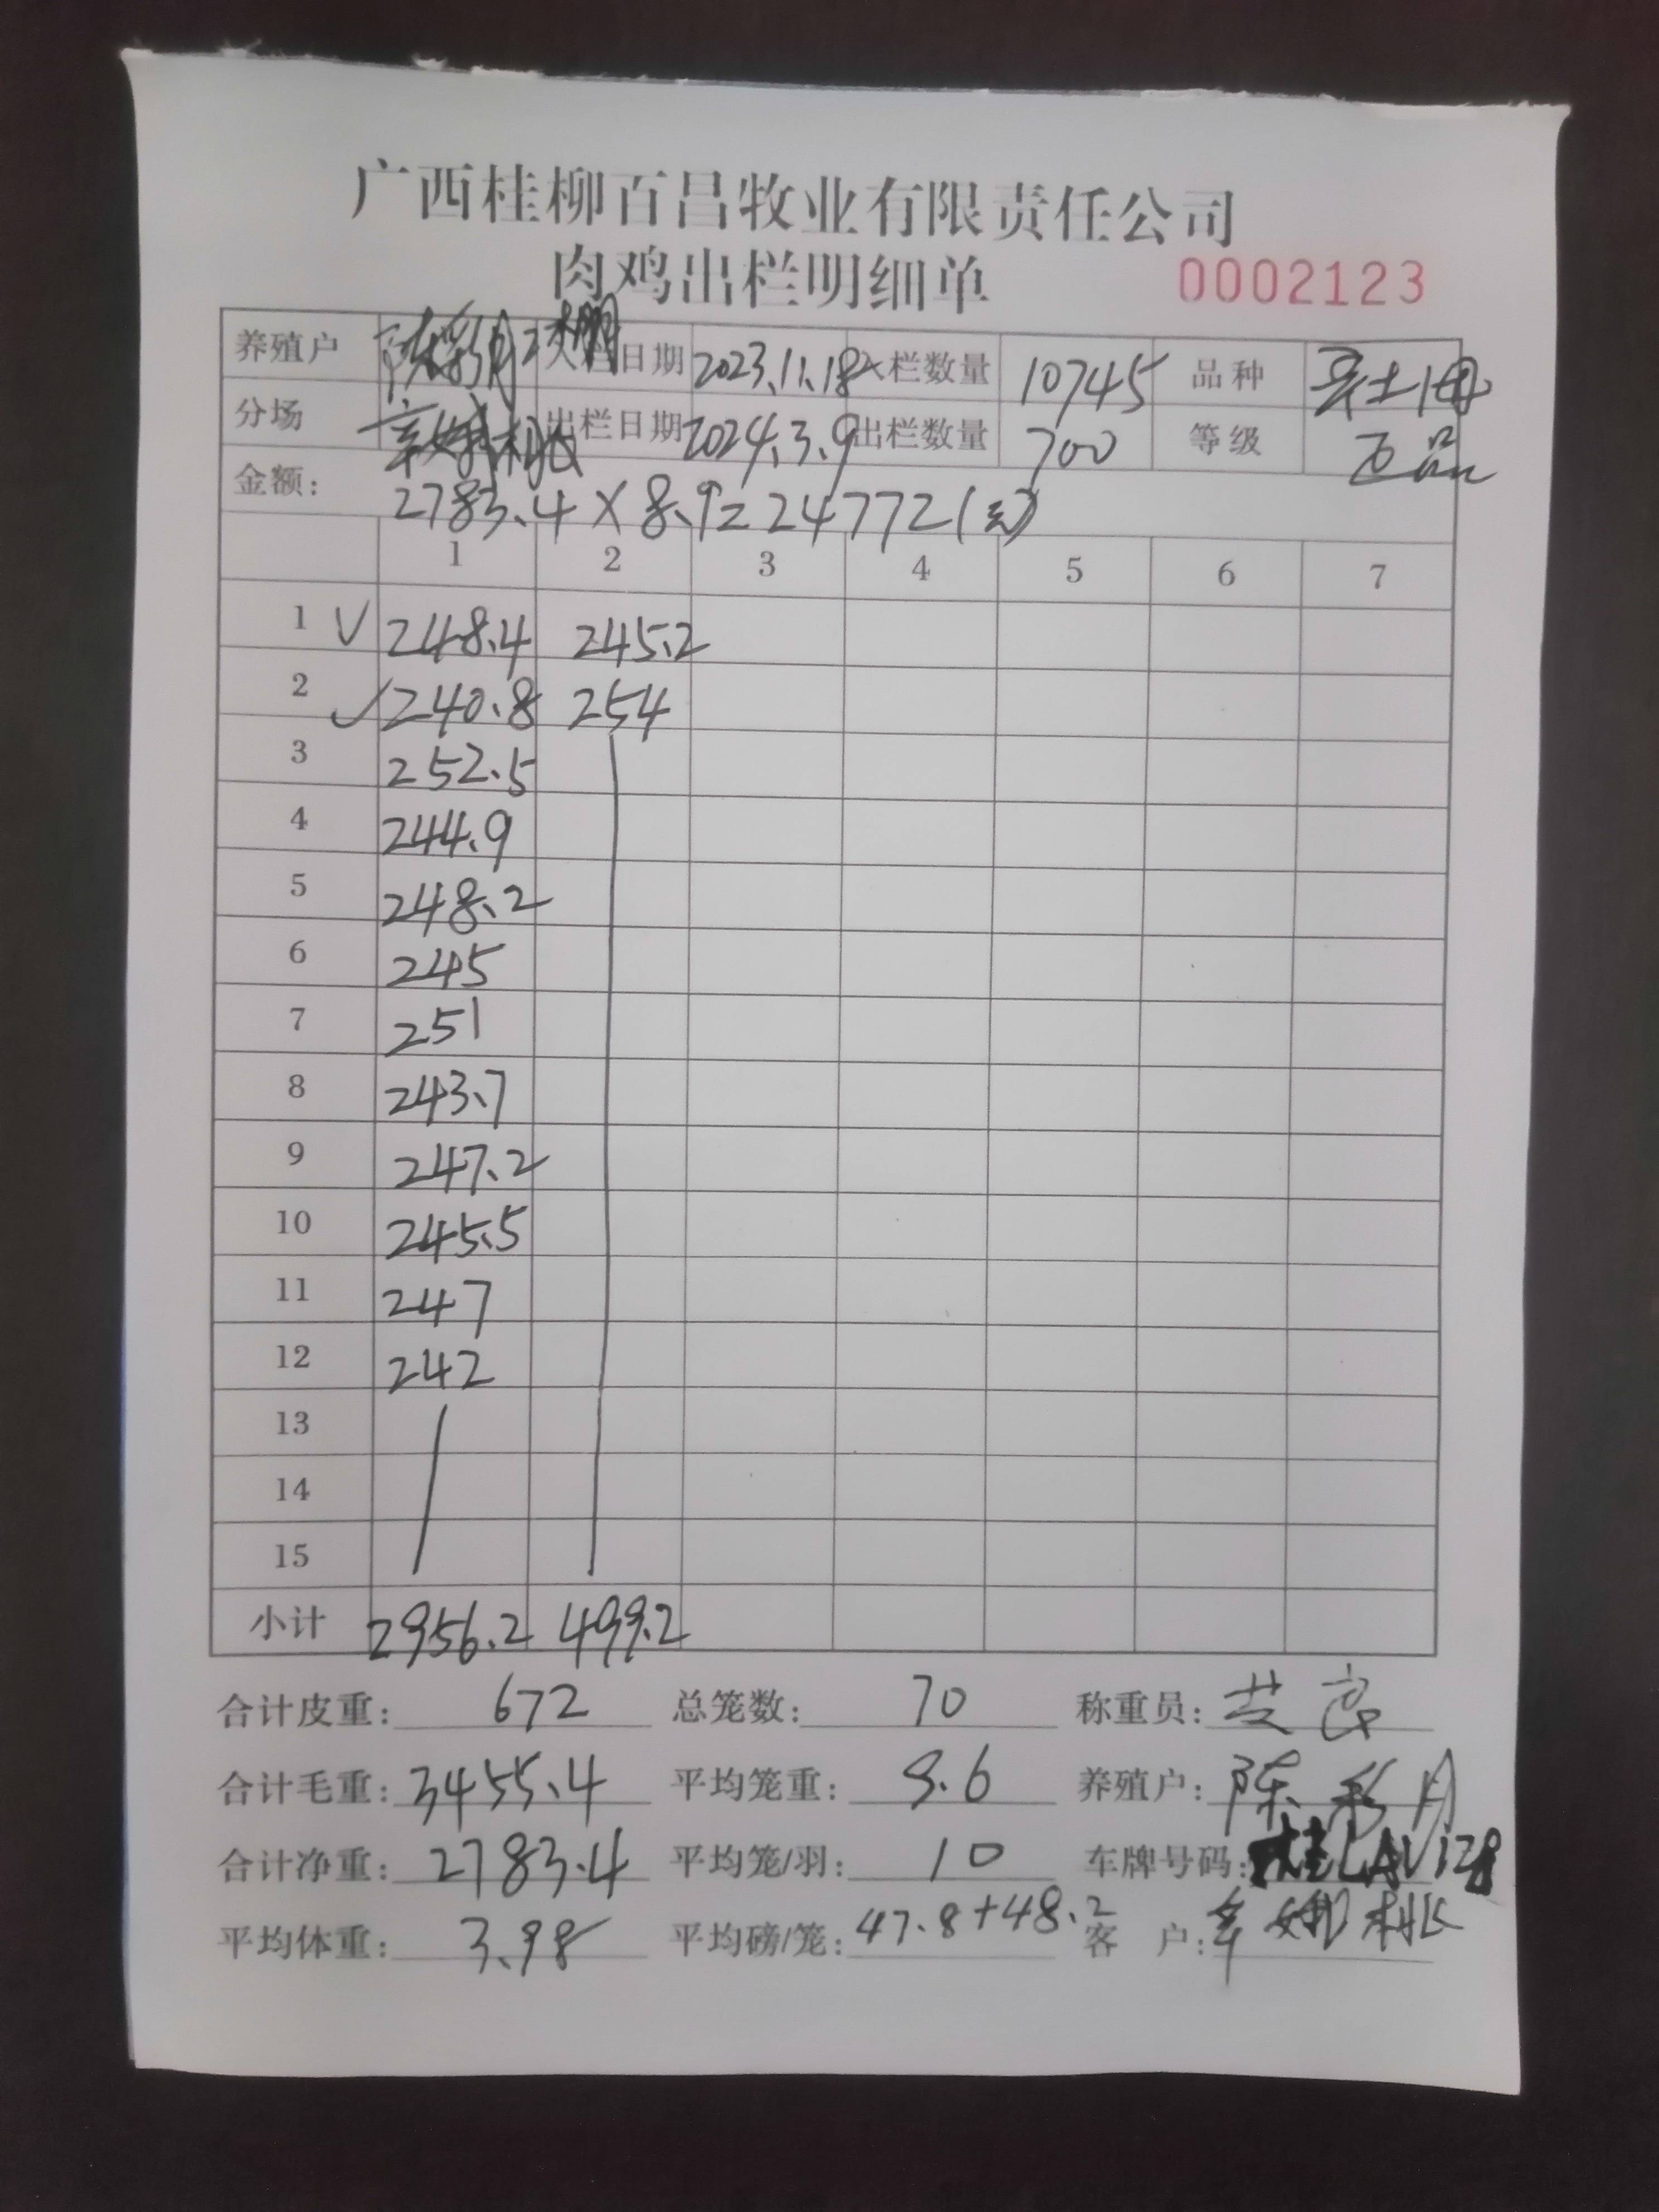 广西桂柳百昌牧业有限责任公司
肉鸡出栏明细单 0002123
养殖户 陈彩月2棚 入栏日期 2023.11.18 入栏数量 10745 品种 土1母
分场 出栏日期 2024.3.9 出栏数量 700 等级 正品
金额: 2783.4×8.9=24772(元)
1 2 3 4 5 6 7
1 √ 248.4 245.2
2 √ 240.8 254
3 252.5
4 244.9
5 248.2
6 245
7 251
8 243.7
9 247.2
10 245.5
11 247
12 242
13
14
15
小计 2956.2 499.2
合计皮重: 672 总笼数: 70 称重员:
合计毛重: 3455.4 平均笼重: 9.6 养殖户: 陈彩月
合计净重: 2783.4 平均笼/羽: 10 车牌号码: 桂LAV128
平均体重: 3.98 平均磅/笼: 47.8+48.2 客户: